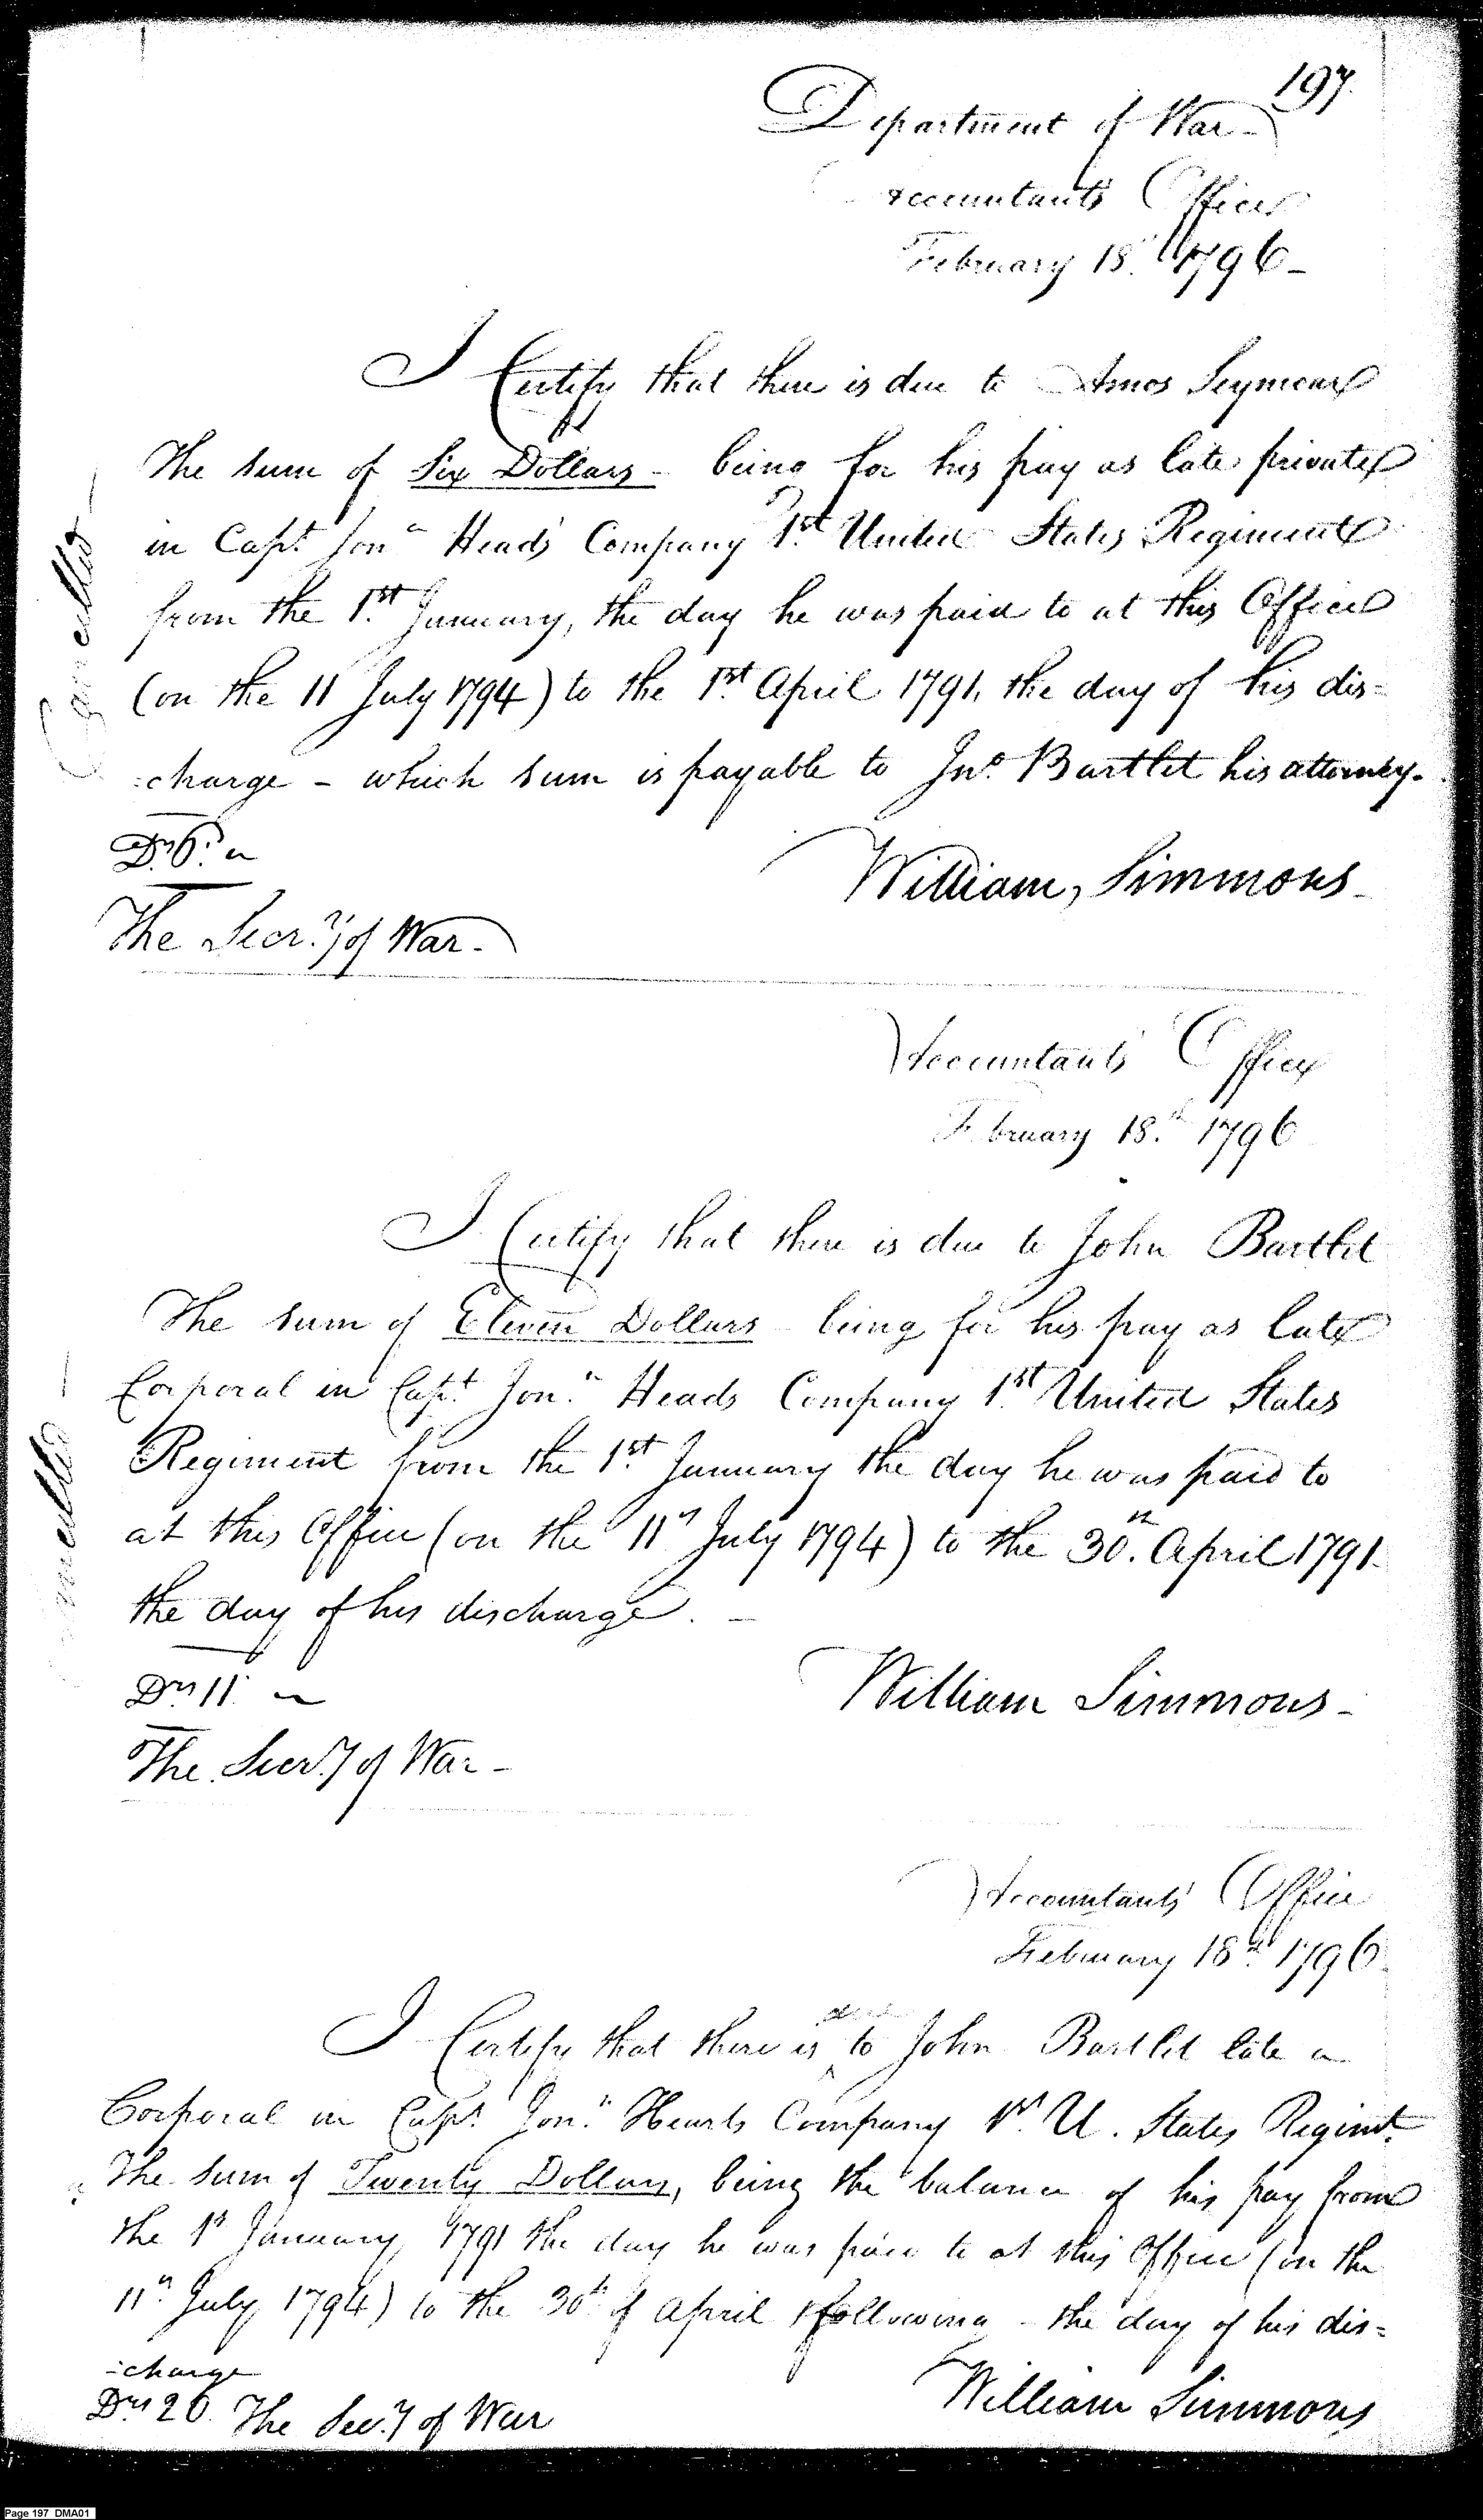 197.
Department of War -
Accountants Office
February 18th 1796 -
I Certify that there is due to Amos Seymour
The sum of Six Dollars - being for his pay as late private
in Capt. Jona Heads Company 1st United States Regiment
from the 1st January, the day he was paid to at this Office
(on the 11 July 1794) to the 1st April 1791, the day of his dis=
=charge - which sum is payable to Jno. Bartlet his attorney.
Cancelled -
Drs 6.
William Simmons -
The Secry of War -
Accountants Office
February 18th 1796
I Certify that there is due to John Bartlet
The sum of Eleven Dollars being for his pay as late
Corporal in Capt. Jona Heads Company 1st United States
Regiment from the 1st January the day he was paid to
at this Office (on the 11th July 1794) to the 30th April 1791
the day of his discharge. -
Cancelled -
Drs 11
William Simmons -
The Secry of War -
Accountants Office
February 18th 1796
I Certify that there is due to John Bartlet late a
Corporal in Capt. Jona Hearts Company 1st U. States Regimt.
The sum of Twenty Dollars, being the balance of his pay from
the 1st January 1791 the day he was paid to at this Office (on the
11th July 1794) to the 30th of April following the day of his dis=
=charge
William Simmons
Drs 20. The Secry of War
Page 197 DMA01